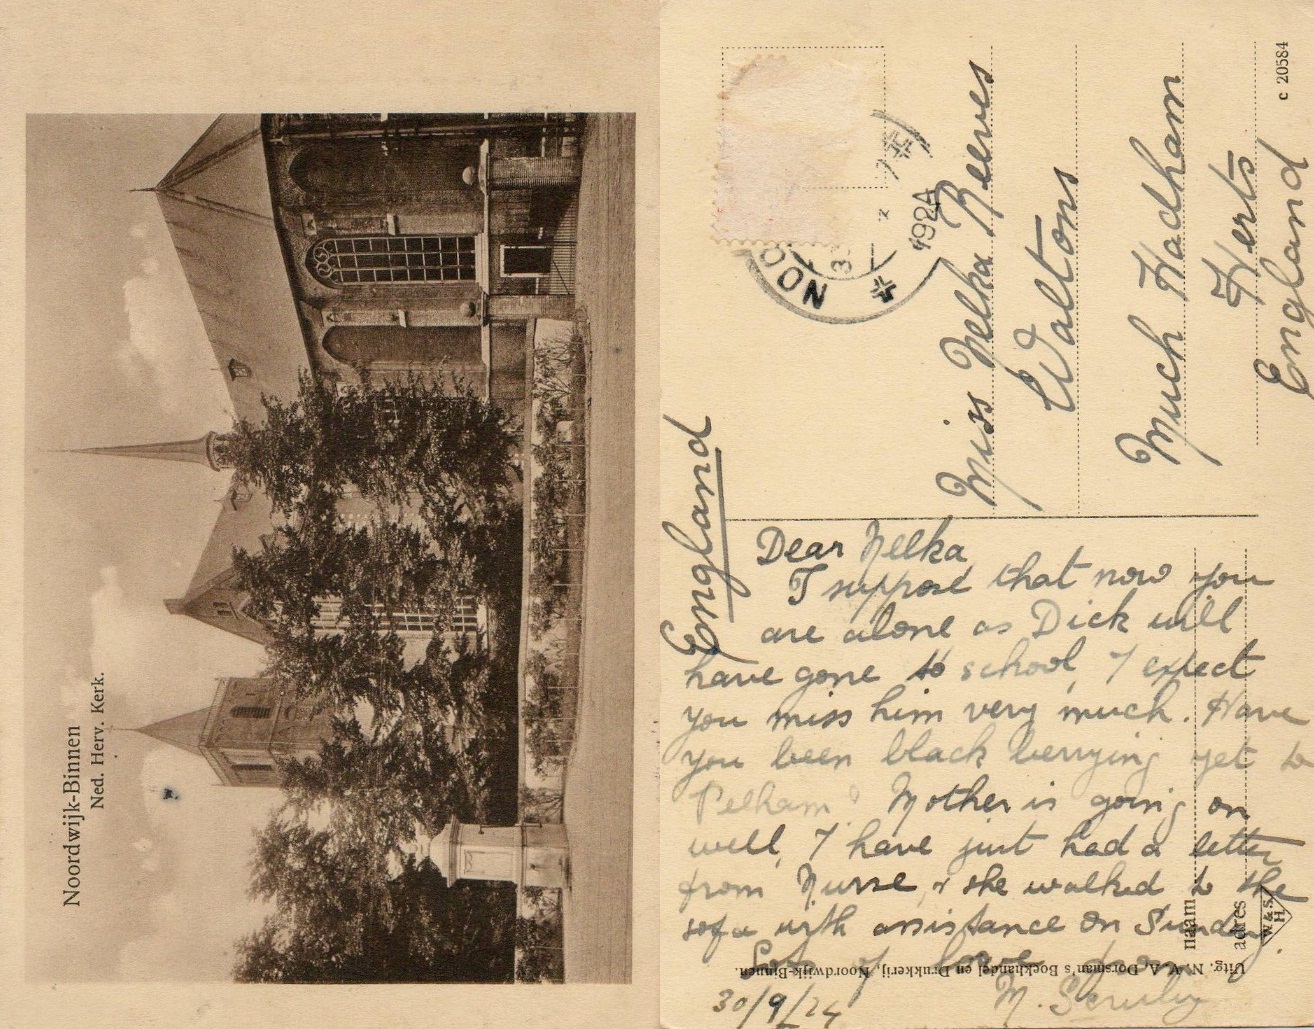 Noordwijk-Binnen
Ned. Herv. Kerk.
c 20584
NOO
1924
Miss Nelka Reeves
Waltons
Much Hadham
Herts
England
England
Dear Nelka
I suppose that now you
are alone as Dick will
have gone to school, I expect
you miss him very much. Have
you been black berrying yet to
Pelham? Mother is going on
well, I have just had a letter
from Nurse, & she walked to the
sofa with assistance on Sunday.
Lots of love from
M.
30/9/24
naam
adres
W. & S.
H.
Uitg. N. V. A. Dorsman's Boekhandel en Drukkerij, Noordwijk-Binnen.